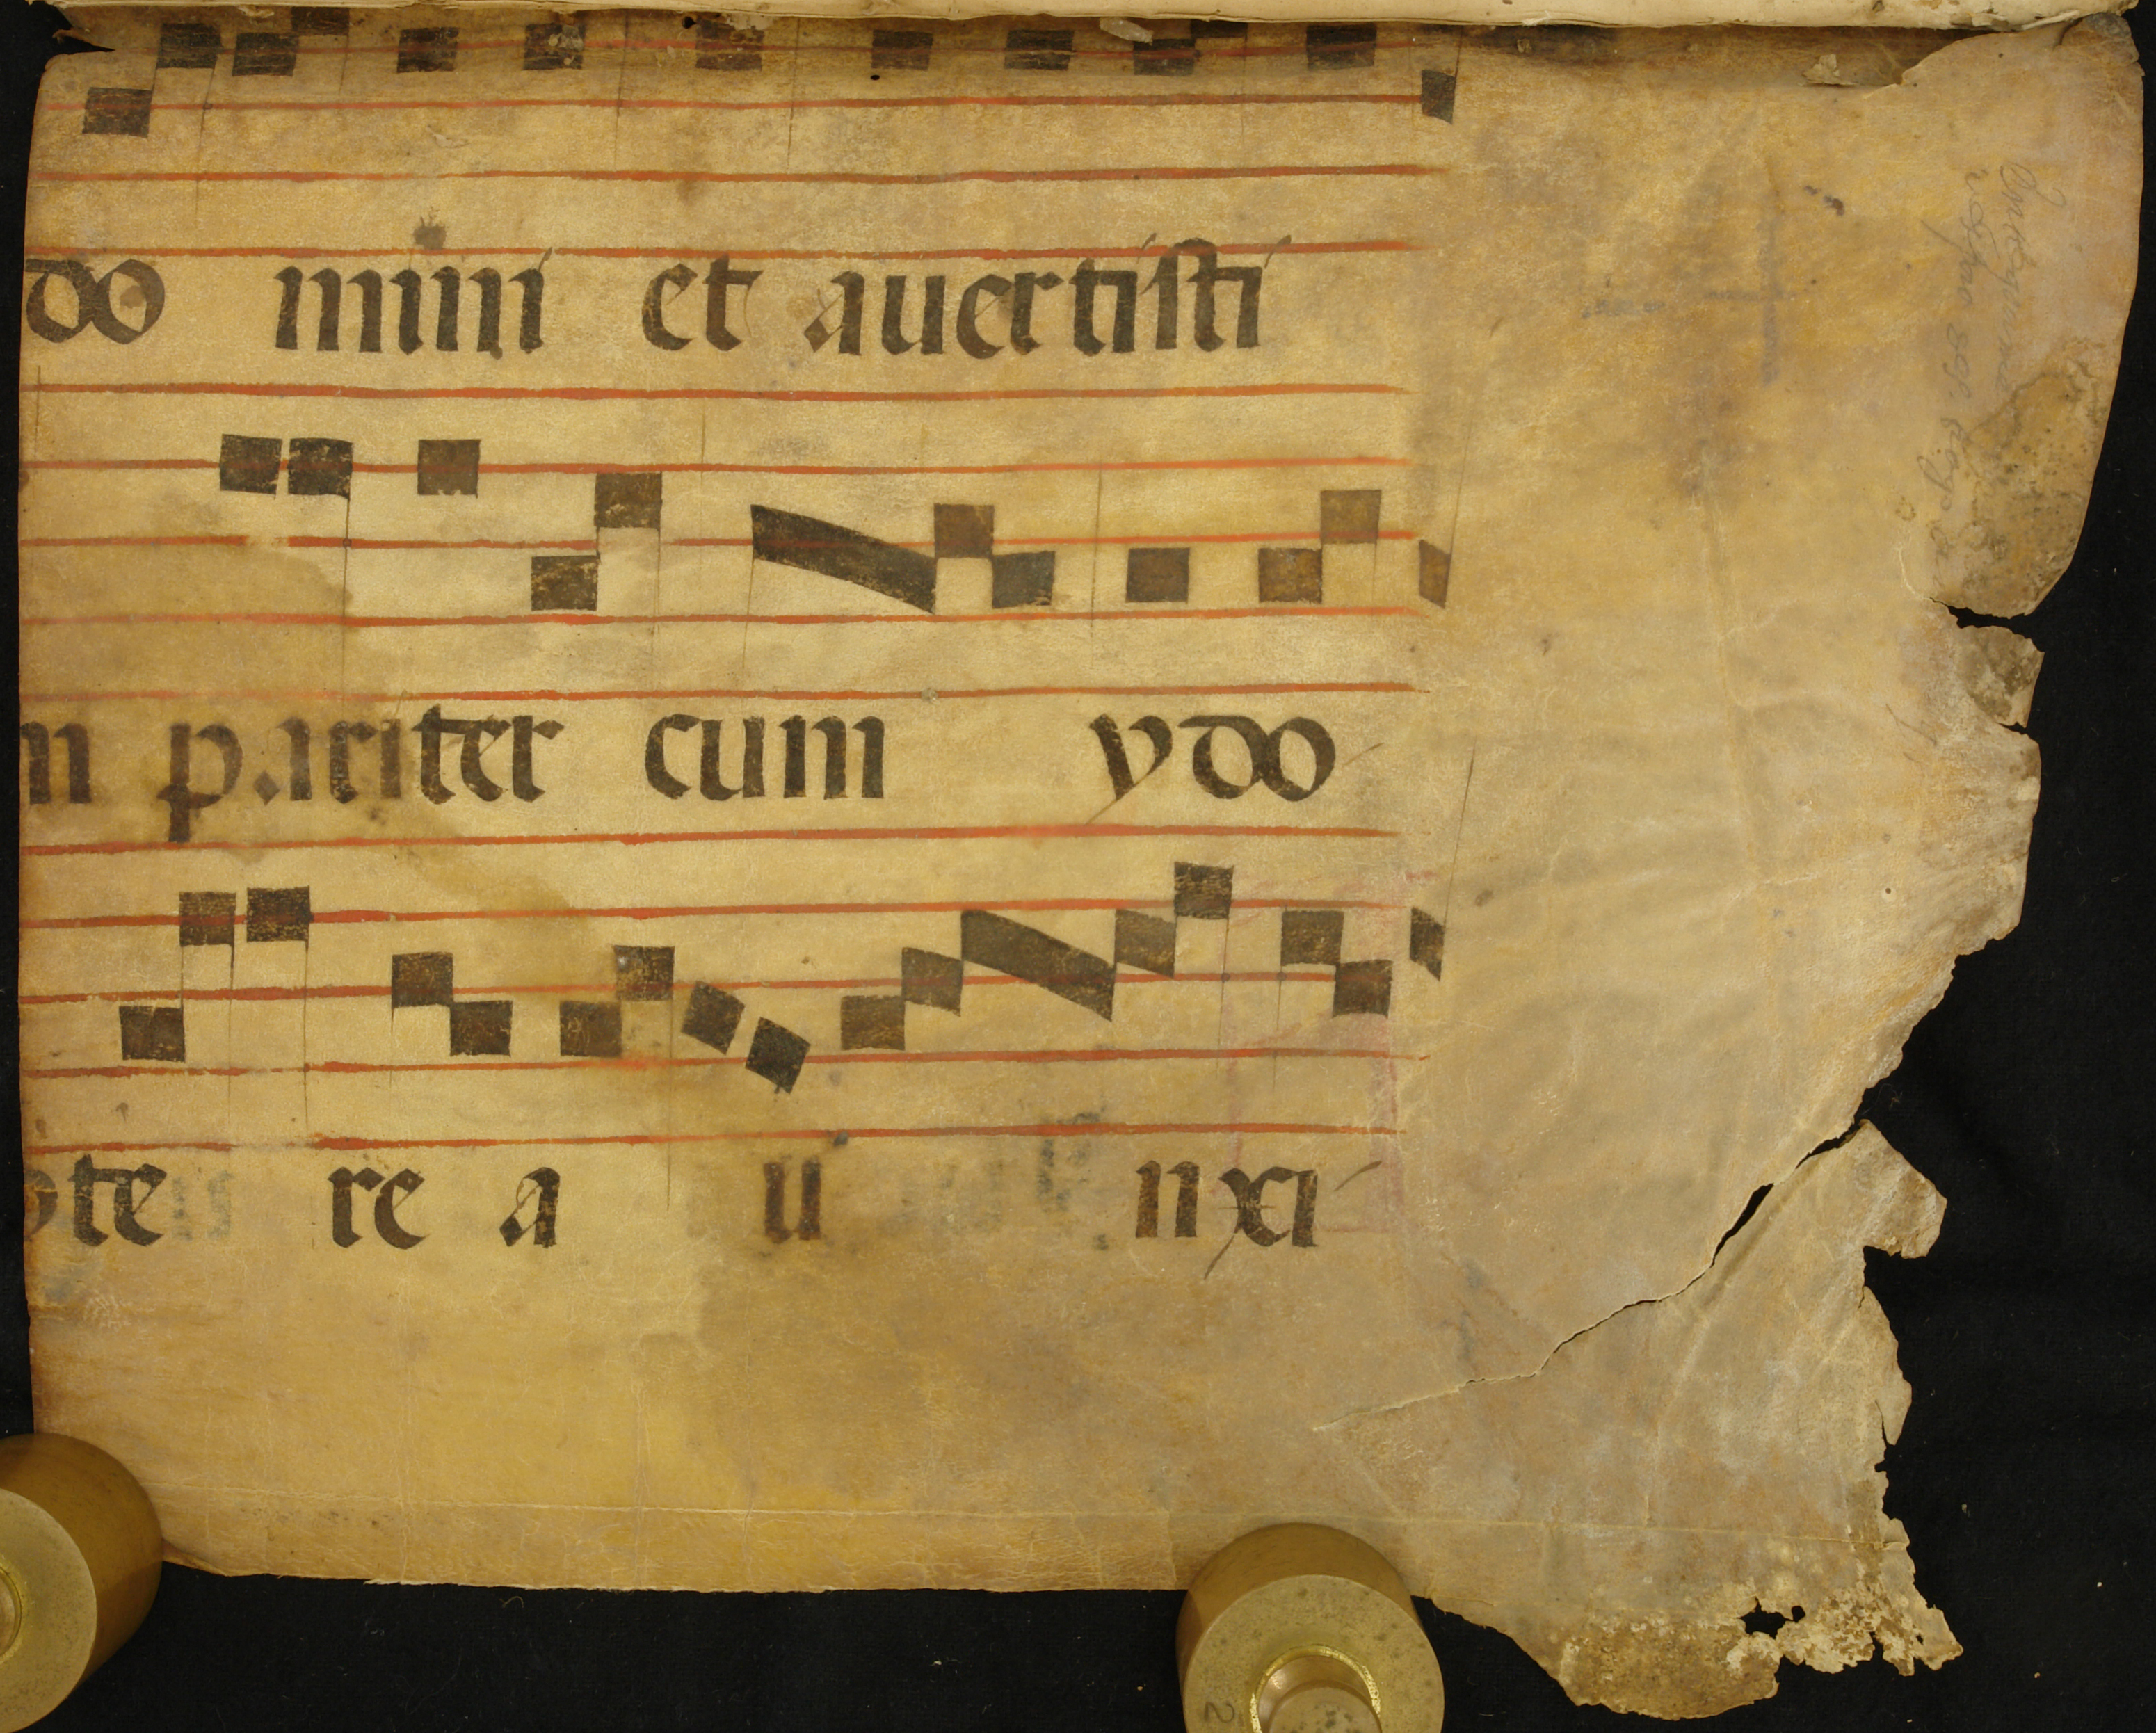 do mini et auertisti
m pariter cum ydo
te re a u nxi